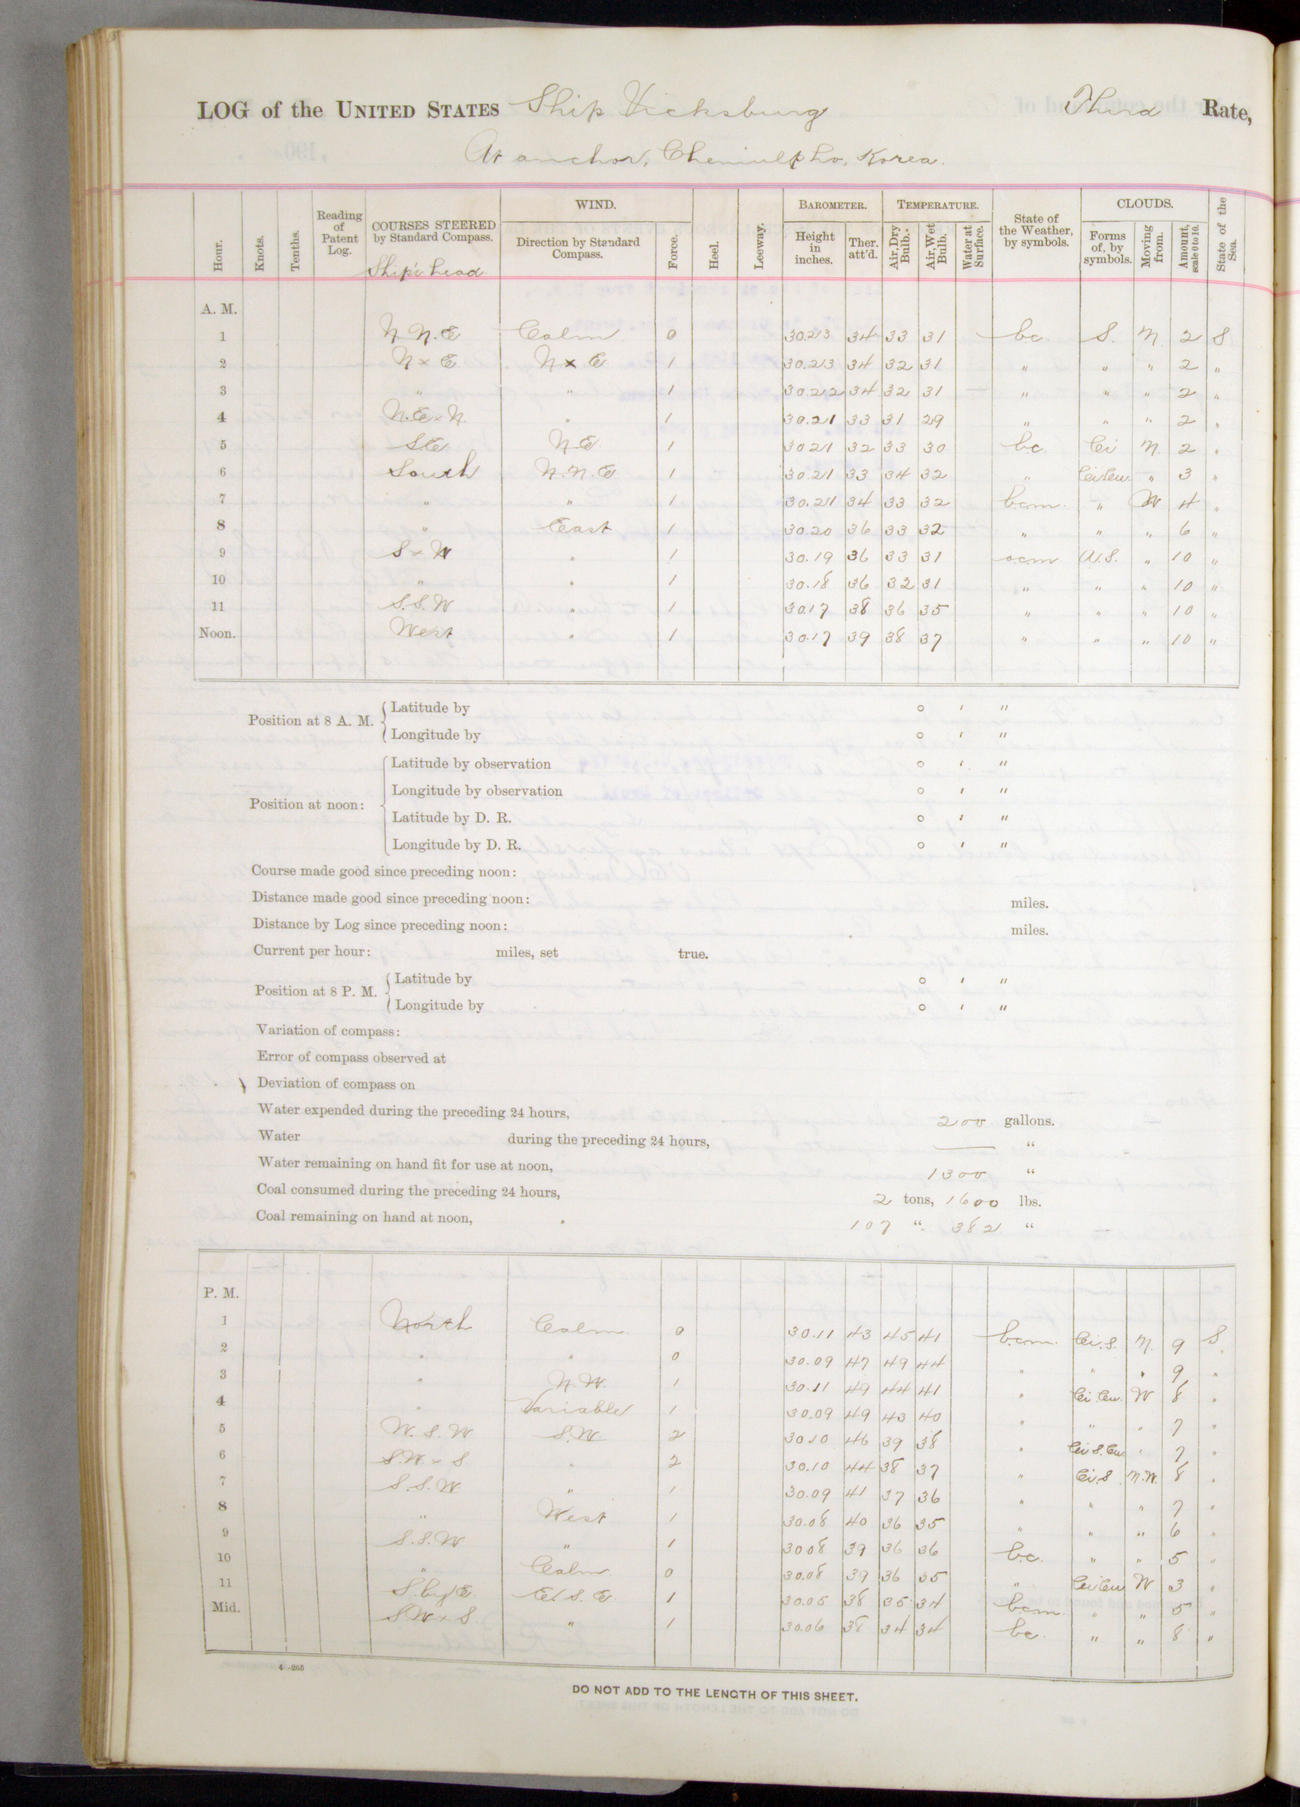 LOG of the UNITED STATES Ship Vicksburg Third Rate,
At anchor, Chemulpho, Korea.
Hour. Knots. Tenths. Reading of Patent Log. COURSES STEERED by Standard Compass. Ship's head WIND. Direction by Standard Compass. Force. Heel. Leeway. BAROMETER. Height in inches. Ther. att'd. TEMPERATURE. Air, Dry Bulb. Air, Wet Bulb. Water at Surface. State of the Weather, by symbols. CLOUDS. Forms of, by symbols. Moving from. Amount, scale 0 to 10. State of the Sea.
A. M.
1 N.N.E Calm 0 30.213 34 33 31 bc S. N. 2 S
2 N x E N x E 1 30.213 34 32 31 " " " 2 "
3 " " 1 30.212 34 32 31 " " " 2 "
4 N.E x N. " 1 30.21 33 31 29 " " " 2 "
5 SE N E 1 30.21 32 33 30 bc Ci N. 2 "
6 South N.N.E 1 30.21 33 34 32 " Ci Cu " 3 "
7 " " 1 30.21 34 33 32 bcm. " W 4 "
8 " East 1 30.20 36 33 32 " " " 6 "
9 S x W " 1 30.19 36 33 31 ocm " 10 "
10 " " 1 30.18 36 32 31 " " " 10 "
11 S.S.W " 1 30.17 38 36 35 " " " 10 "
Noon. West " 1 30.17 39 38 37 " " " 10 "
Position at 8 A. M. { Latitude by ° ' "
Longitude by ° ' "
Position at noon: { Latitude by observation ° ' "
Longitude by observation ° ' "
Latitude by D. R. ° ' "
Longitude by D. R. ° ' "
Course made good since preceding noon:
Distance made good since preceding noon: miles.
Distance by Log since preceding noon: miles.
Current per hour: miles, set true.
Position at 8 P. M. { Latitude by ° ' "
Longitude by ° ' "
Variation of compass:
Error of compass observed at
Deviation of compass on
Water expended during the preceding 24 hours, 200 gallons.
Water during the preceding 24 hours, — "
Water remaining on hand fit for use at noon, 1300 "
Coal consumed during the preceding 24 hours, 2 tons, 1600 lbs.
Coal remaining on hand at noon, 107 " 382 "
P. M.
1 North Calm 0 30.11 43 45 41 bcm. Ci.S. N. 9 S.
2 " " 0 30.09 47 49 44 " " " 9 "
3 " N.W. 1 30.11 49 44 41 " Ci Cu W 8 "
4 " Variable 1 30.09 49 43 40 " " " 7 "
5 W.S.W S.W 2 30.10 46 39 38 " Ci S. Cu " 7 "
6 S.W x S " 2 30.10 44 38 37 " Ci.S N.W. 8 "
7 S.S.W " 1 30.09 41 37 36 " " " 7 "
8 " West 1 30.08 40 36 35 " " " 6 "
9 S.S.W " 1 30.08 39 36 36 bc. " " 5 "
10 " Calm 0 30.08 39 36 35 " Ci Cu W 3 "
11 S. by E E S.E. 1 30.05 38 35 34 bcm. " " 5 "
Mid. S.W x S. " 1 30.06 38 34 34 bc. " " 8 "
4—265
DO NOT ADD TO THE LENGTH OF THIS SHEET.